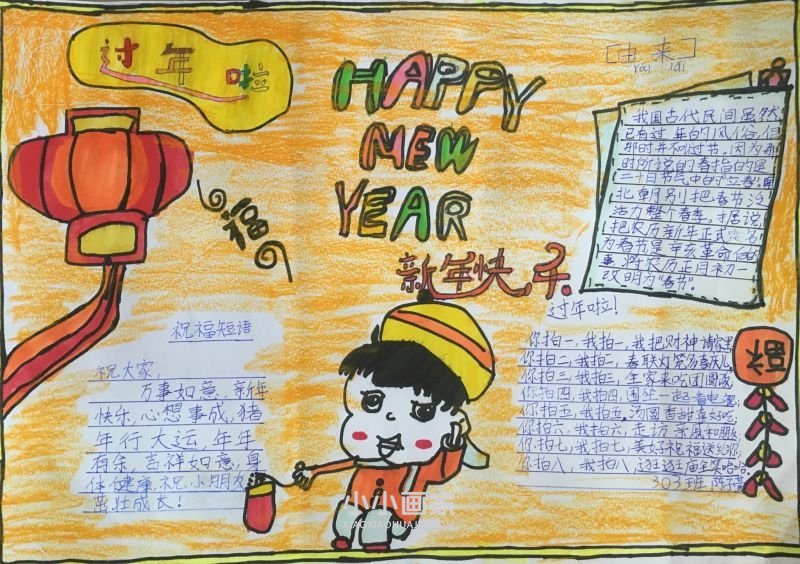 过年啦
HAPPY
NEW
YEAR
新年快乐
福
[由来]
yóu lái
我国古代民间虽然
已有过年的风俗,但
那时并不叫过节,因为那
时所说的春指的是
二十四节气中的"立春"。南
北朝
把春节
整个春季。据说
把农历新年正式定
为春节是辛亥革命
事,将农历正月初一
改明为"春节"。
祝福短语
祝大家,
万事如意,新年
快乐,心想事成,猪
年行大运,年年
有余,吉祥如意,身
体健康,祝小朋友
茁壮成长!
过年啦!
你拍一,我拍一,我把财神请家里
你拍二,我拍二,春联灯笼
你拍三,我拍三,全家来吃团圆
你拍四,我拍四,围坐一起
你拍五,我拍五,汤圆香甜真好吃,
你拍六,我拍六,走访亲戚和朋友
你拍七,我拍七,美好祝福送给你,
你拍八,我拍八,逛逛庙会笑哈哈。
303班 陈
福
小小画家
XIAOXIAOHUAJIA